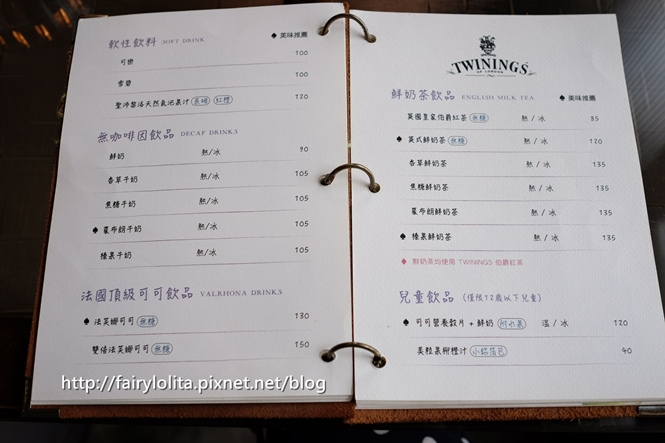 軟性飲料 SOFT DRINK ♠ 美味推薦
可樂 100
雪碧 100
聖沛黎洛天然氣泡果汁 檸檬 紅橙 120
無咖啡因飲品 DECAF DRINKS
鮮奶 熱/冰 90
香草牛奶 熱/冰 105
焦糖牛奶 熱/冰 105
♠ 蔓布朗牛奶 熱/冰 105
♠ 榛果牛奶 熱/冰 105
法國頂級可可飲品 VALRHONA DRINKS
♠ 法芙娜可可 無糖 130
雙倍法芙娜可可 無糖 150
TWININGS
OF LONDON
鮮奶茶飲品 ENGLISH MILK TEA ♠ 美味推薦
英國皇家伯爵紅茶 無糖 熱 / 冰 85
♠ 英式鮮奶茶 無糖 熱 / 冰 120
香草鮮奶茶 熱 / 冰 135
焦糖鮮奶茶 熱 / 冰 135
蔓布朗鮮奶茶 熱 / 冰 135
♠ 榛果鮮奶茶 熱 / 冰 135
♠ 鮮奶茶均使用 TWININGS 伯爵紅茶
兒童飲品 (僅限12歲以下兒童)
♠ 可可營養穀片 + 鮮奶 附水果 溫 / 冰 120
美粒果柳橙汁 小鋁箔包 40
http://fairylolita.pixnet.net/blog